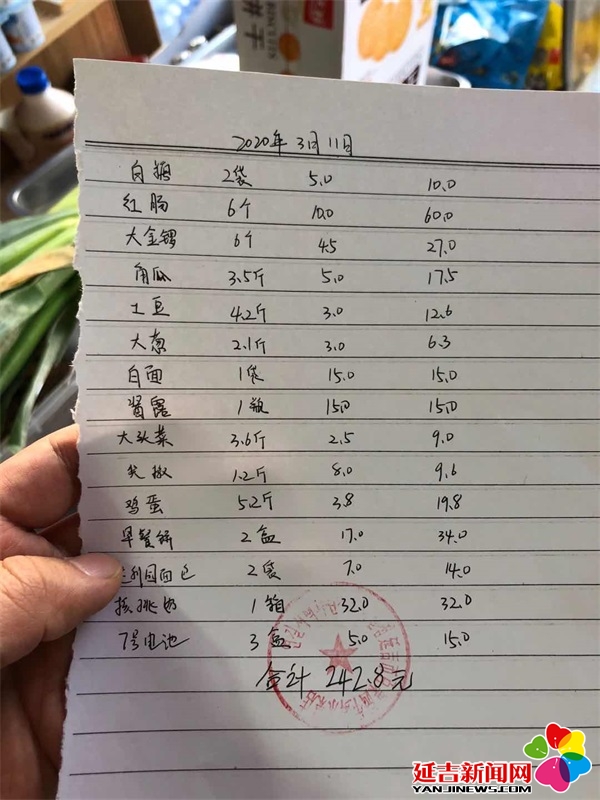 2020年 3月 11日
白糖 2袋 5.0 10.0
红肠 6个 10.0 60.0
大金锣 6个 4.5 27.0
角瓜 3.5斤 5.0 17.5
土豆 4.2斤 3.0 12.6
大葱 2.1斤 3.0 6.3
白面 1袋 15.0 15.0
酱油 1瓶 15.0 15.0
大头菜 3.6斤 2.5 9.0
尖椒 1.2斤 8.0 9.6
鸡蛋 5.2斤 3.8 19.8
早餐饼 2盒 17.0 34.0
利园面包 2袋 7.0 14.0
核桃奶 1箱 32.0 32.0
7号电池 3盒 5.0 15.0
合计 242.8元
延吉新闻网
YANJINEWS.COM